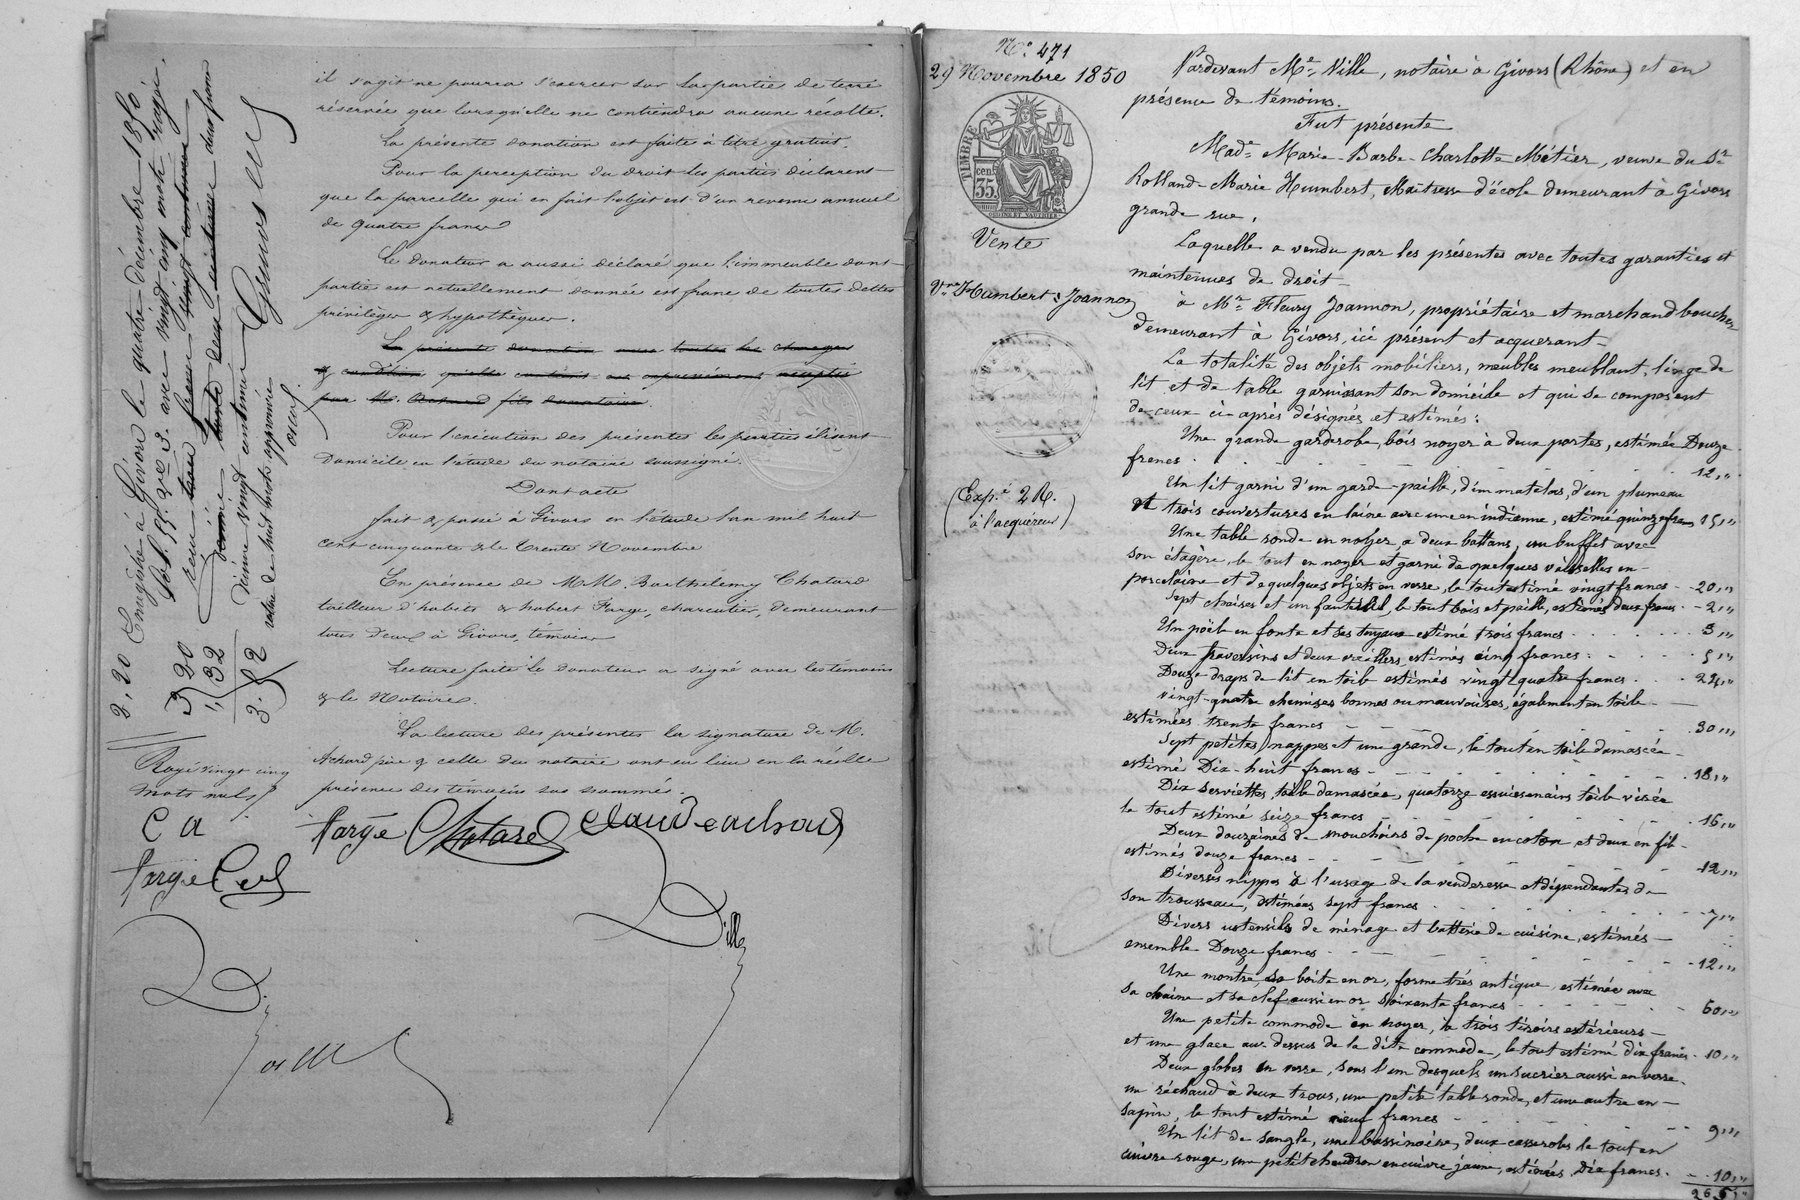 il s'agit ne pourra s'exercer sur la partie de terre
réservée que lorsqu'elle ne contiendra aucune récolte.
La présente donation est faite à titre gratuit.
Pour la perception du droit les parties déclarent
que la parcelle qui en fait l'objet est d'un revenu annuel
de quatre francs
Le donateur a aussi déclaré que l'immeuble dont
partie est actuellement donnée est franc de toutes dettes
privilèges & hypothèques.
La présente donation avec toutes les charges
& conditions qu'elle contient est expressément acceptée
par M. fils donataire.
Pour l'exécution des présentes les parties élisent
Domicile en l'étude du notaire soussigné.
Dont acte
fait & passé à Givors en l'étude l'an mil huit
cent cinquante & le trente Novembre
En présence de MM. Barthélemy Chatard
tailleur d'habits & hubert Farge, charcutier, demeurant
tous deux à Givors, témoins
Lecture faite le donateur a signé avec les témoins
& le Notaire.
La lecture des présentes la signature de M.
Achard père & celle du notaire ont eu lieu en la réelle
présence des témoins sus nommés.
farge Chatard Claude achard
Ville
2,20 Enregistré à Givors le quatre décembre 1850
fol. 55. Vce 3. avec vingt cinq mots rayés.
3 20
1, 32
3. 52
Rayé vingt cinq
mots nuls
C a
farge
N° 471
29 Novembre 1850
TIMBRE
35 cen
Vente
Vve Humbert à Joannon
(Exp.é 2 R.
à l'acquéreur)
Pardevant Me Ville, notaire à Givors (Rhône) et en
présence de témoins.
Fut présente
Made Marie-Barbe-Charlotte Métier, veuve du Sr
Rolland-Marie Humbert, Maîtresse d'école demeurant à Givors
grande rue,
Laquelle a vendu par les présentes avec toutes garanties et
maintenues de droit
à Mr Fleury Joannon, propriétaire et marchand boucher
demeurant à Givors, ici présent et acquerant
La totalité des objets mobiliers, meubles meublant, linge de
lit et de table garnissant son domicile et qui se composent
de ceux ci-après désignés et estimés:
Une grande garderobe, bois noyer à deux portes, estimée Douze
francs 12,"
Un lit garni d'un garde-paille, d'un matelas, d'un plumeau
et trois couvertures en laine avec une en indienne, estimé quinze francs 15,"
Une table ronde en noyer a deux battans, un buffet avec
son étagère, le tout en noyer et garni de quelques vaisselles en
porcelaine et de quelques objets en verre, le tout estimé vingt francs - 20,"
Sept chaises et un fauteuil, le tout bois et paille, estimés deux francs - 2,"
Un poële en fonte et ses tuyaux estimé trois francs 3,"
Deux traversins et deux oreillers, estimés cinq francs 5,"
Douze draps de lit en toile estimés vingt quatre francs 24,"
vingt-quatre chemises bonnes ou mauvaises, également en toile
estimées trente francs 30,"
Sept petites nappes et une grande, le tout en toile damassée
estimé Dix-huit francs 18,"
Dix serviettes, toile damassée, quatorze essuiesmains toile
le tout estimé seize francs 16,"
Deux douzaines de mouchoirs de poche en coton et deux en fil
estimés douze francs 12,"
Diverses nippes à l'usage de la venderesse et dépendantes de
son trousseau, estimées sept francs 7,"
Divers ustensils de ménage et batterie de cuisine, estimés
ensemble Douze francs 12,"
Une montre, sa boite en or, forme très antique, estimée avec
sa chaine et sa clef aussi en or soixante francs 60,"
Une petite commode en noyer, à trois tiroirs extérieurs
et une glace au-dessus de la dite commode, le tout estimé dix francs. 10,"
Deux globes en verre, sous l'un desquels un sucrier aussi en verre,
un réchaud à deux trous, une petite table ronde, et une autre en
sapin, le tout estimé neuf francs 9,"
Un lit de sangle, une bassinoire, deux casseroles le tout en
cuivre rouge, un petit chaudron en cuivre jaune, estimés Dix francs. 10,"
265,"